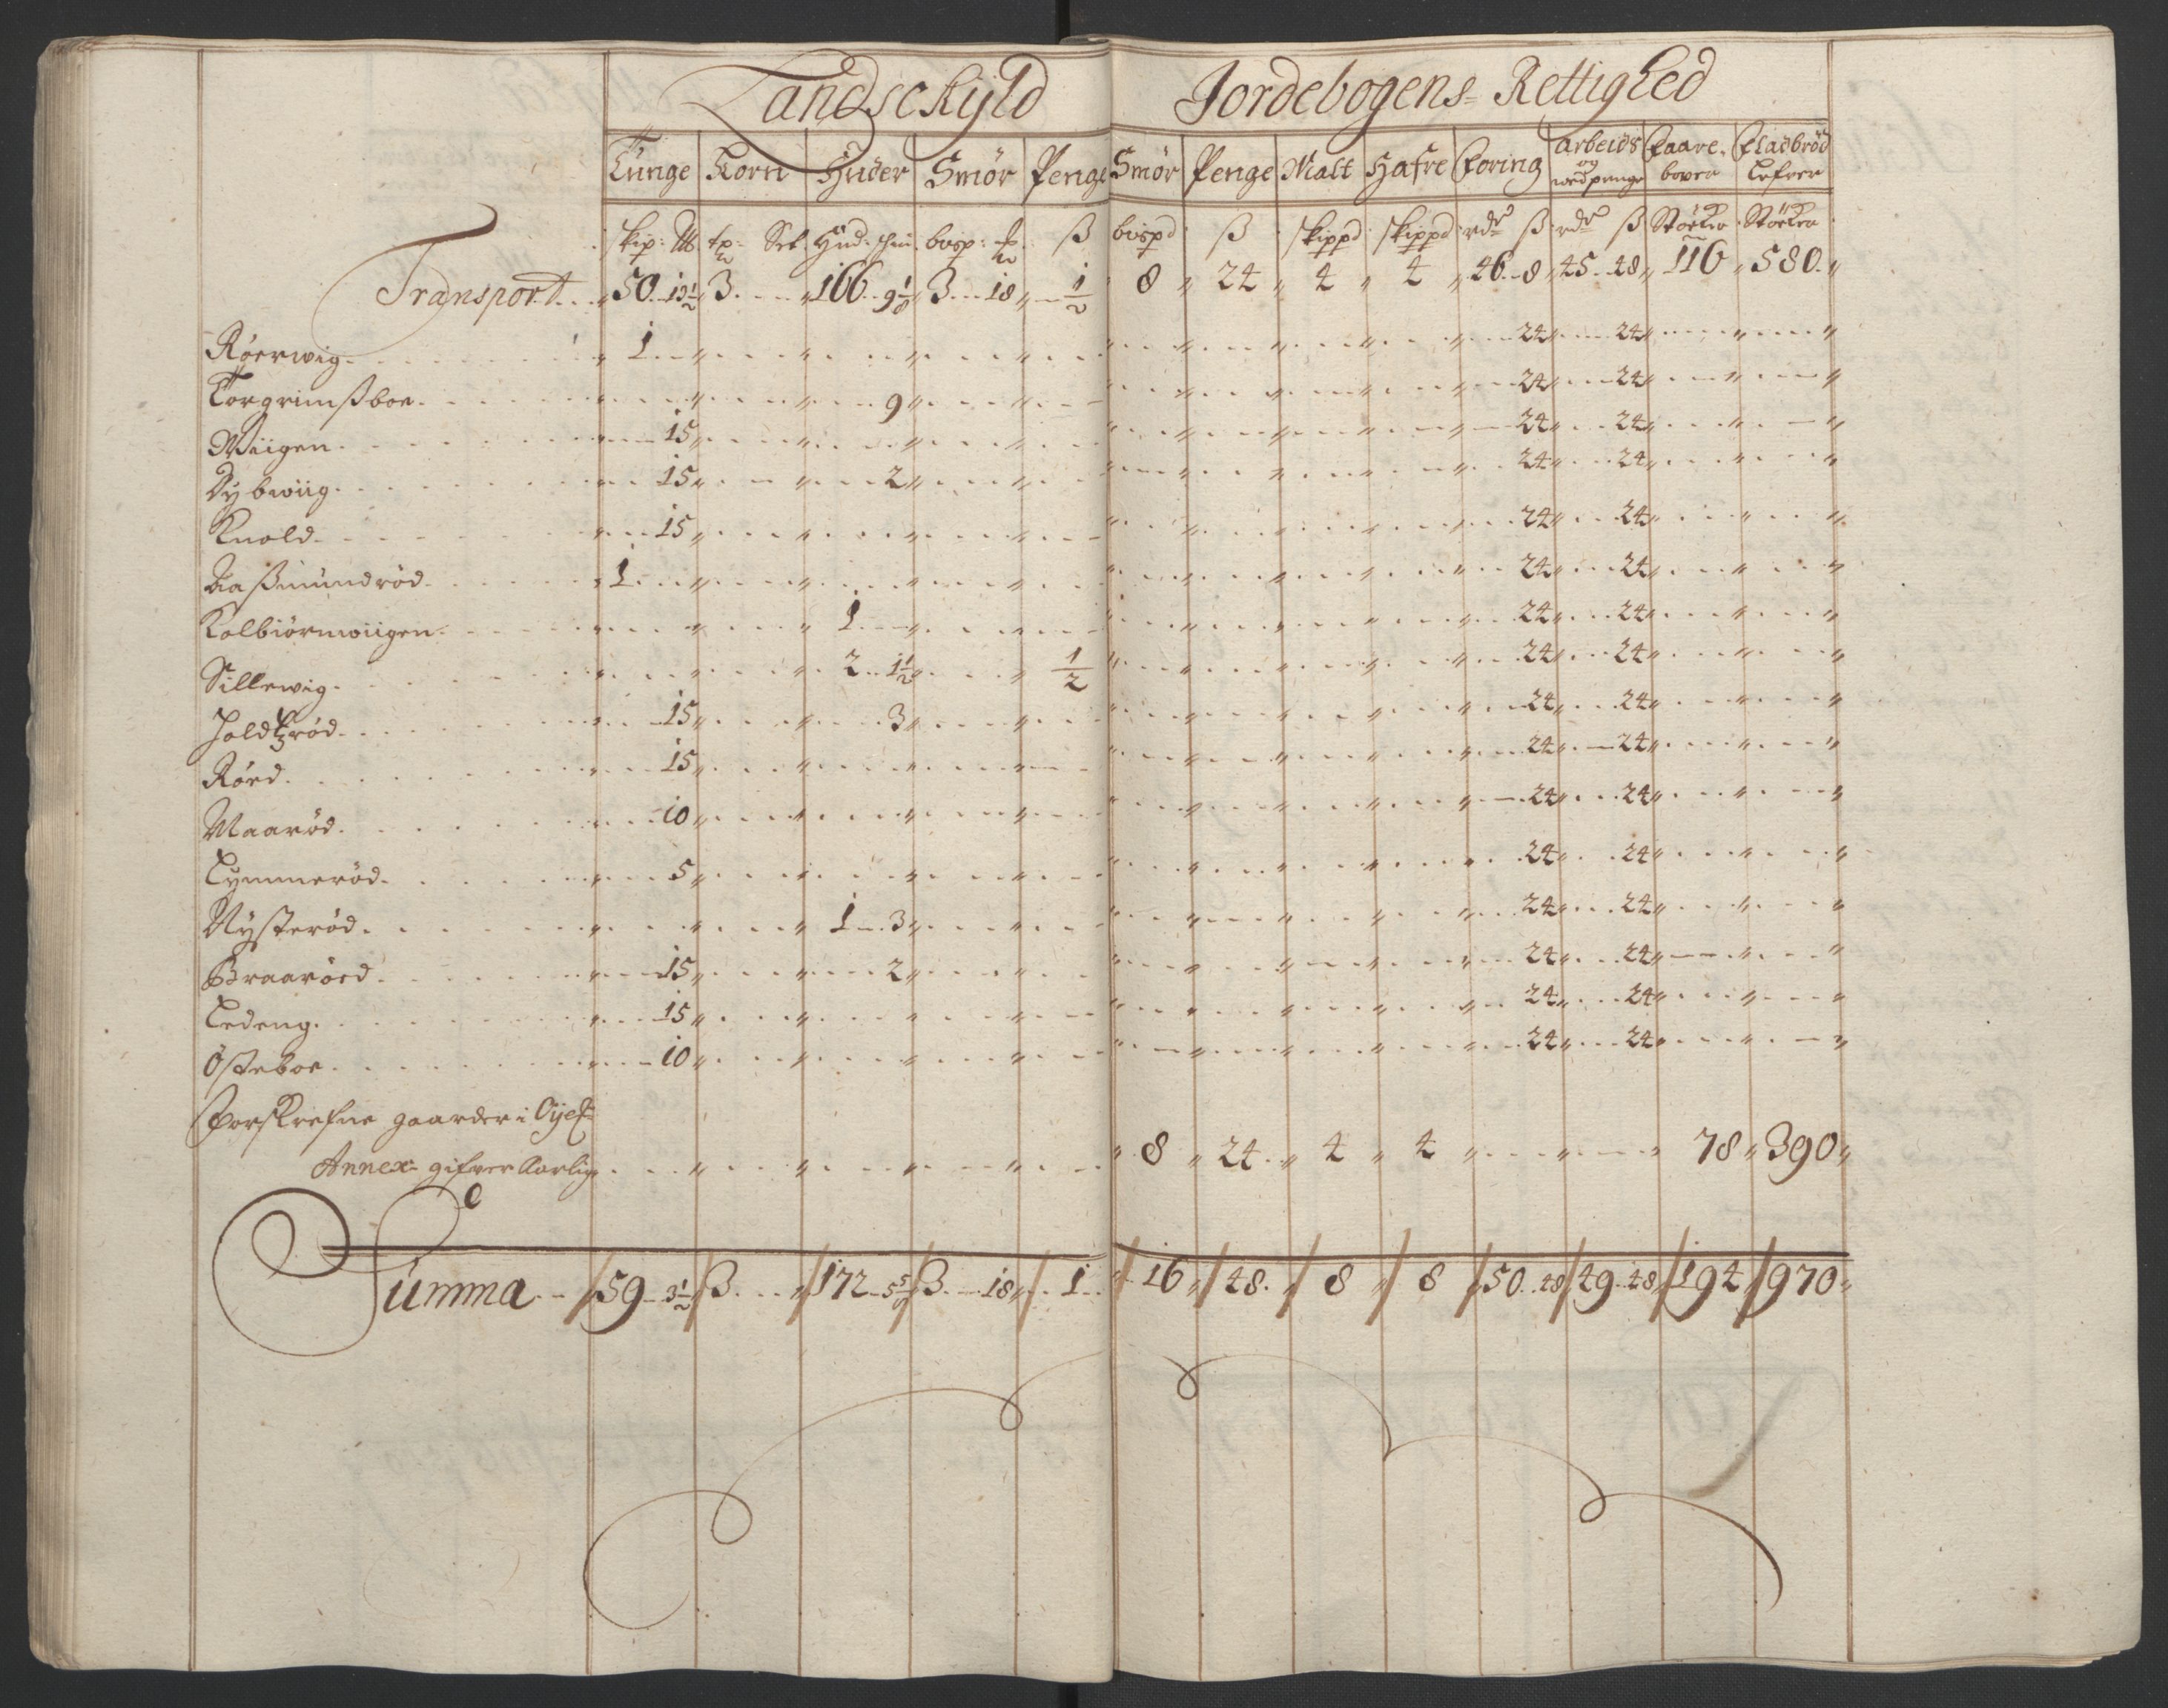 Landsckyld Jordebogens= Rettighed
Tunge Korn Huder Smör Penge Smör Penge Malt Hafre Foring Arbeids og wedpenge Faare bover Fladbröd Lefver
skip: ℔ tp: Set Hud: bvsp: ß bvspd ß skippd skippd rdr ß rdr ß Störcker Störcker
Transport 50 13½ 3 166 9⅛ 3 18 ½ 8 24 4 4 46 8 45 48 116 580
Röerwig 1 24 24
Torgrimßboe 9 24 24
Wiigen 15 24 24
Dybwiig 15 2 24 24
Knold 15 24 24
Aaßmundröd 1 24 24
Kolbiörnwiigen 1 24 24
Sillewig 2 1½ ½ 24 24
Holdtzröd 15 3 24 24
Röed 15 24 24
Maaröd 10 24 24
Lymmeröd 5 24 24
Nysteröd 1 3 24 24
Braaröed 15 2 24 24
Ledeng 15 24 24
Östeboe 10 24 24
Forskrefne gaarder i Öyest
Annex gifver Aarlig 8 24 4 4 78 390
Summa 59 3½ 3 172 5⅝ 3 18 1 16 48 8 8 50 48 49 48 194 970